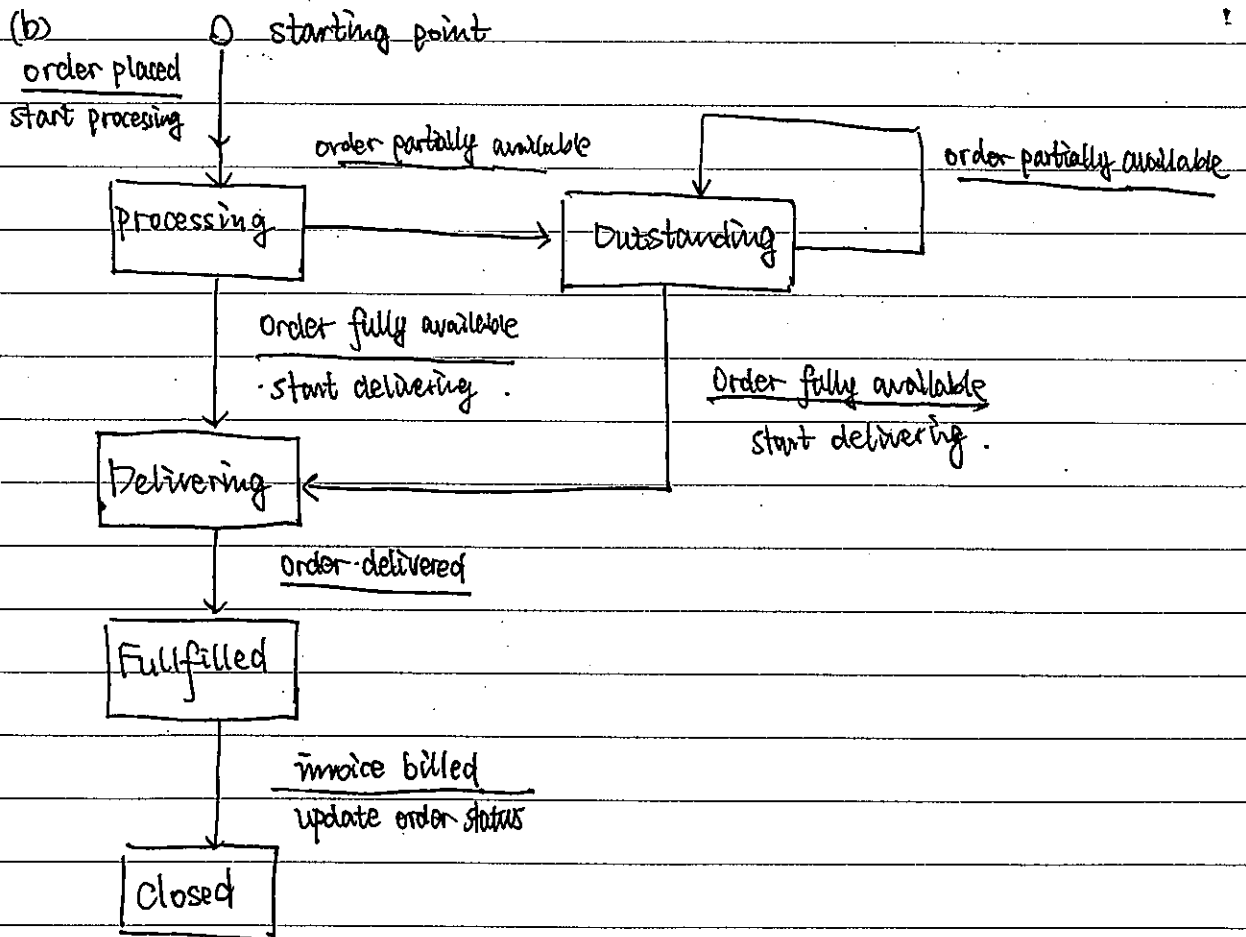 (b)
starting point
order placed
start procesing
order partially available
order partially available
processing
Outstanding
Order fully available
start delivering.
Order fully available
start delivering.
Delivering
order delivered
Fullfilled
invoice billed
update order status
Closed